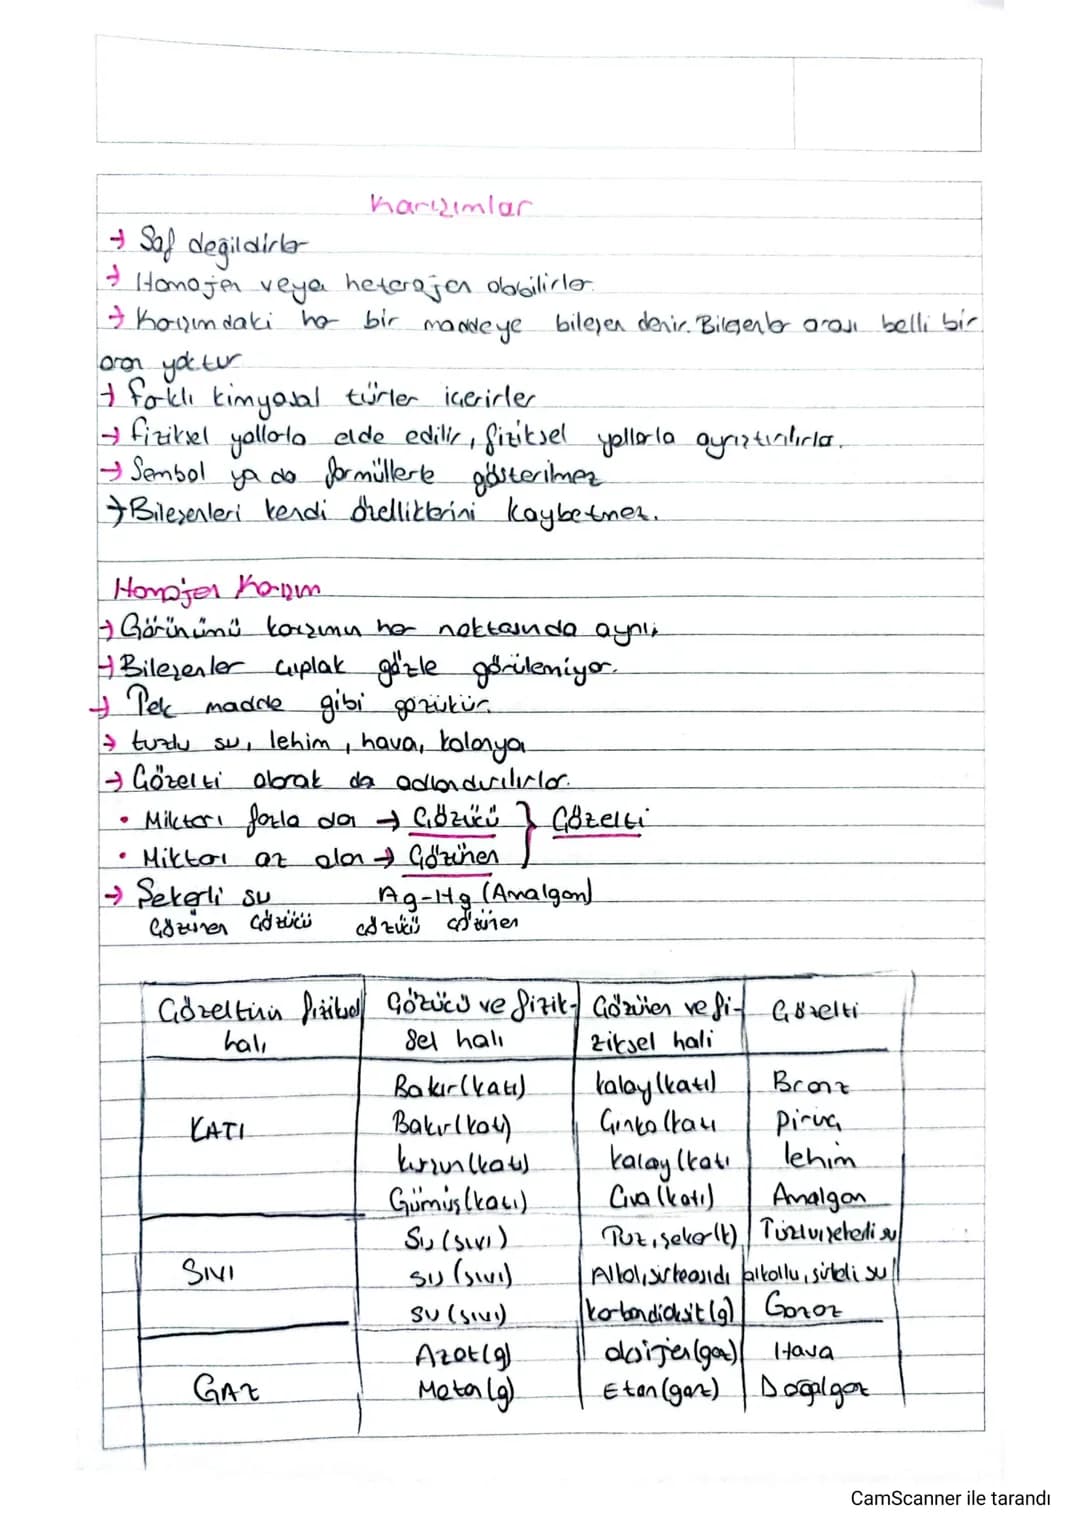 Karışımlar
→ Saf değildirler
→ Homojen veya heterojen olabilirler.
→ Karışımdaki her bir maddeye bileşen denir. Bileşenler arası belli bir
oran yoktur
→ farklı kimyasal türler içerirler
→ fiziksel yollarla elde edilir, fiziksel yollarla ayrıştırılırlar.
→ Sembol ya da formüllerle gösterilmez
→ Bileşenleri kendi özelliklerini kaybetmez.
Homojen Karışım
→ Görünümü karışımın her noktasında aynı;
→ Bileşenler çıplak gözle görülemiyor.
→ Tek madde gibi gözükür.
→ tuzlu su, lehim, hava, kolonya
→ Çözelti olarak da adlandırılırlar.
• Miktarı fazla olan → Çözücü } Çözelti
• Miktarı az olan → Çözünen
→ Şekerli su Ag-Hg (Amalgam)
Çözünen Çözücü çözücü çözünen
Çözeltinin fiziksel hali
Çözücü ve fizik-sel hali
Çözünen ve fi-ziksel hali
Çözelti
KATI
Bakır (katı) kalay (katı) Bronz
Bakır (katı) Çinko (katı Pirinç
kurşun (katı) kalay (katı lehim
Gümüş (katı) Cıva (katı) Amalgam
SIVI
Su (sıvı) Tuz, şeker (k) Tuzlu, şekerli su
su (sıvı) Alkol, sirke asidi alkollu, sirkeli su
su (sıvı) karbondioksit (g) Gazoz
GAZ
Azot (g) oksijen (gaz) Hava
Metan (g) Etan (gaz) Doğalgaz
CamScanner ile tarandı